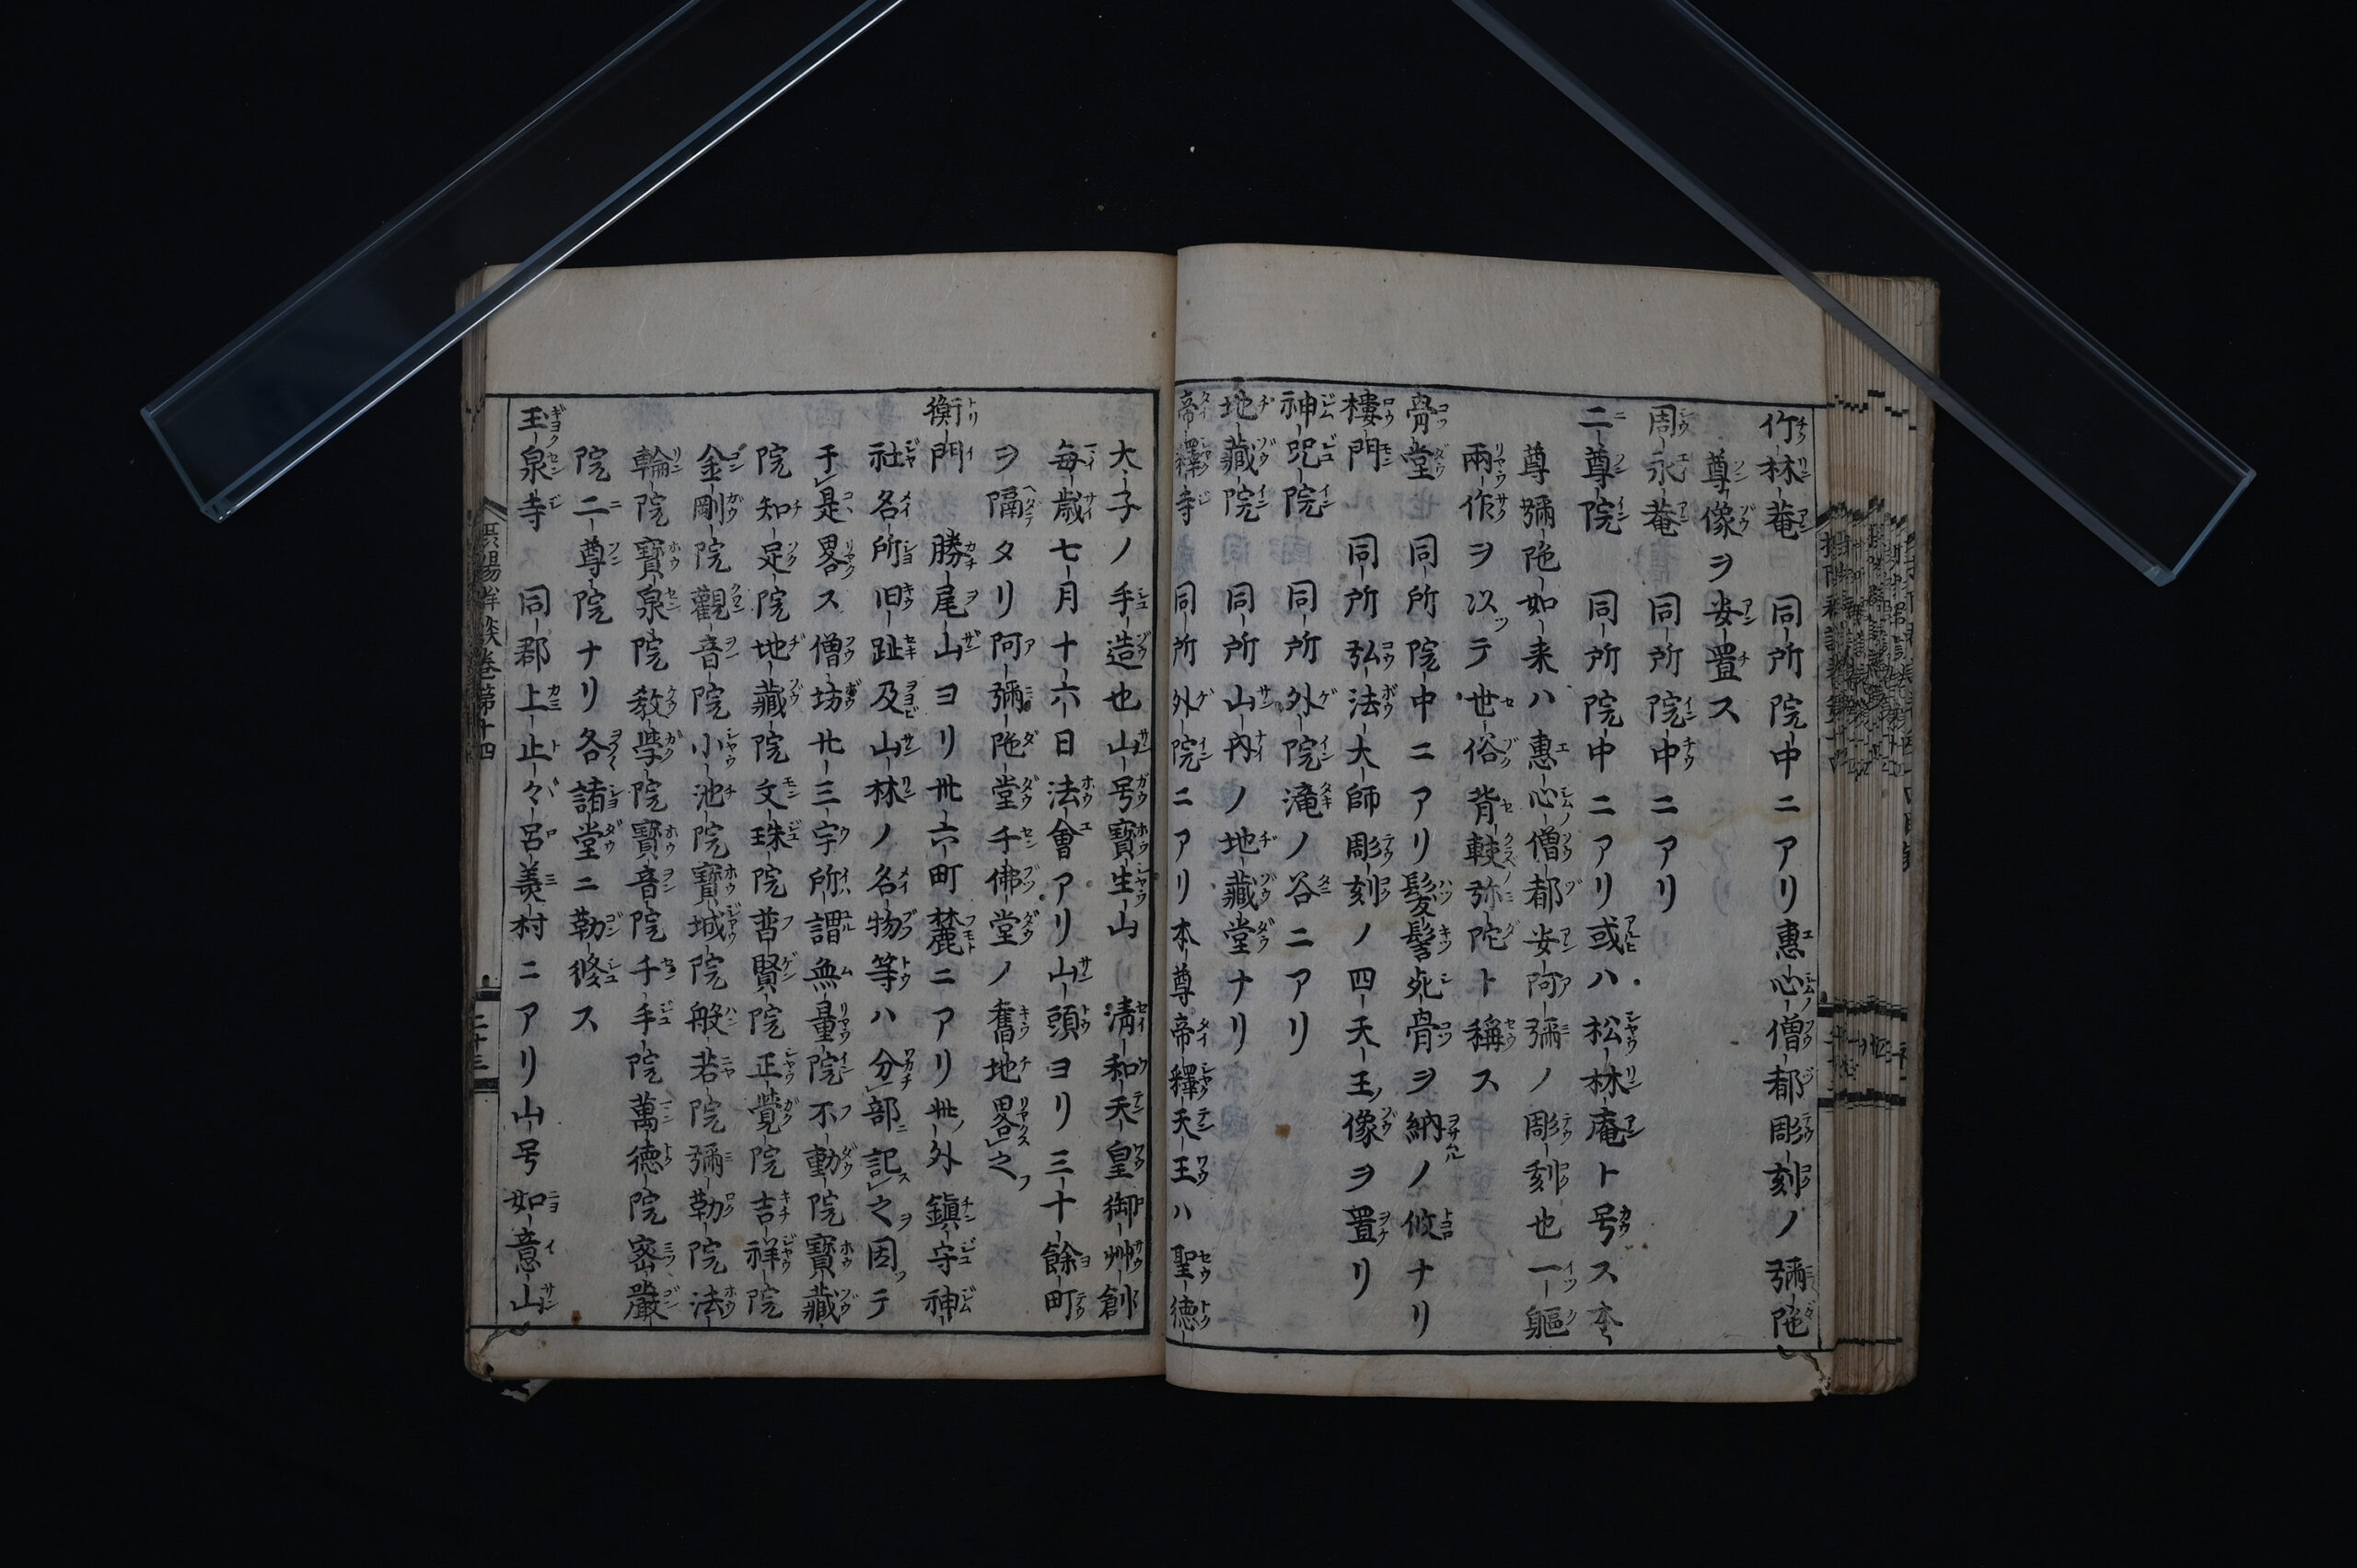 竹林菴 同所院中ニアリ惠心僧都彫刻ノ彌陁
尊像ヲ安置ス
周永菴 同所院中ニアリ
二尊院 同所院中ニアリ或ハ松林庵ト号ス本
尊彌陁如来ハ惠心僧都安阿彌ノ彫刻也一軀
兩作ヲ以テ世俗背較弥陀ト稱ス
骨堂 同所院中ニアリ髪髻死骨ヲ納ノ攸ナリ
樓門 同所弘法大師彫刻ノ四天王像ヲ置リ
神呪院 同所外院滝ノ谷ニアリ
地藏院 同所山内ノ地藏堂ナリ
帝釋寺 同所外院ニアリ本尊帝釋天王ハ聖徳
大子ノ手造也山号寶生山 淸和天皇御艸創
毎歳七月十六日法會アリ山頭ヨリ三十餘町
ヲ隔タリ阿彌陁堂千佛堂ノ舊地畧之
衡門 勝尾山ヨリ卅六町麓ニアリ此外鎮守神
社名所旧趾及山林ノ名物等ハ分部記之因テ
于是畧ス僧坊廿三宇所謂無量院不動院寶藏
院知足院地藏院文珠院普賢院正覺院吉祥院
金剛院觀音院小池院寶城院般若院彌勒院法
輪院寶泉院教学院寶音院千手院萬徳院密嚴
院二尊院ナリ各諸堂ニ勤修ス
玉泉寺 同郡上止々呂美村ニアリ山号如意山
卷第十四
二十三